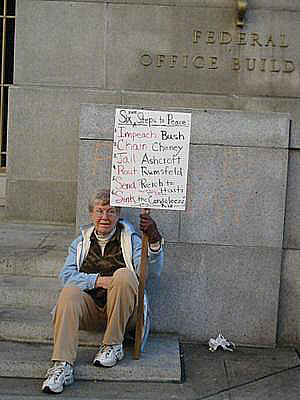 FEDERAL
OFFICE BUILD
Six Steps to Peace
1. Impeach Bush
2. Chain Cheney
3. Jail Ashcroft
4. Rout Rumsfeld
5. Send Reich to Haiti
6. Sink the Condoleezza